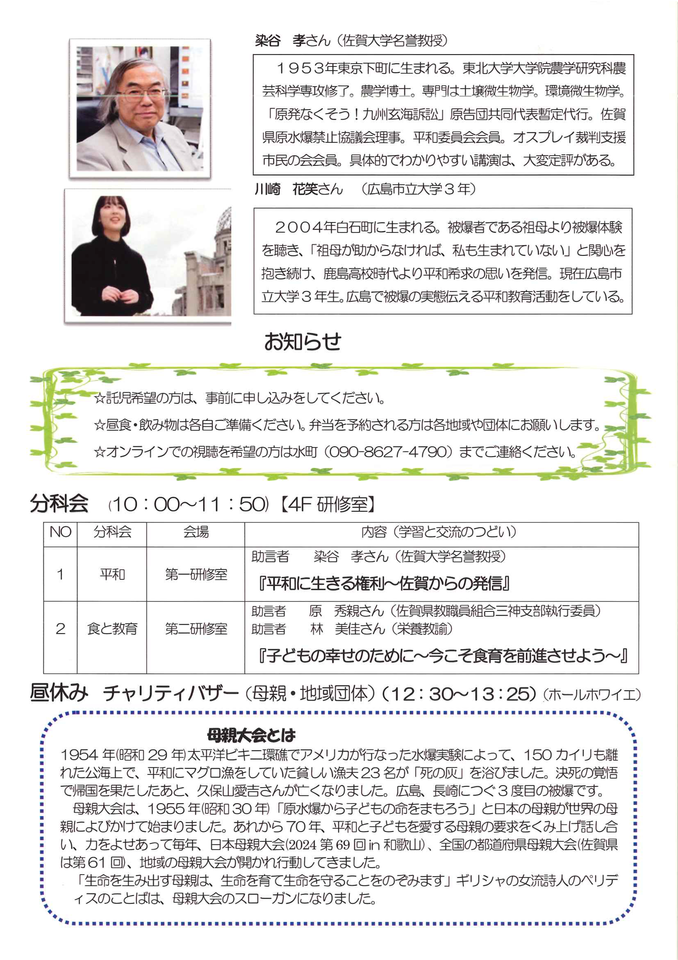 染谷　孝さん（佐賀大学名誉教授）
１９５３年東京下町に生まれる。東北大学大学院農学研究科農
芸科学専攻修了。農学博士。専門は土壌微生物学。環境微生物学。
「原発なくそう！九州玄海訴訟」原告団共同代表暫定代行。佐賀
県原水爆禁止協議会理事。平和委員会会員。オスプレイ裁判支援
市民の会会員。具体的でわかりやすい講演は、大変定評がある。
川崎　花笑さん　（広島市立大学３年）
２００４年白石町に生まれる。被爆者である祖母より被爆体験
を聴き、「祖母が助からなければ、私も生まれていない」と関心を
抱き続け、鹿島高校時代より平和希求の思いを発信。現在広島市
立大学３年生。広島で被爆の実態伝える平和教育活動をしている。
お知らせ
☆託児希望の方は、事前に申し込みをしてください。
☆昼食・飲み物は各自ご準備ください。弁当を予約される方は各地域や団体にお願いします。
☆オンラインでの視聴を希望の方は水町（090-8627-4790）までご連絡ください。
分科会　（10：00～11：50）【4F 研修室】
NO　分科会　会場　内容（学習と交流のつどい）
1　平和　第一研修室　助言者　染谷　孝さん（佐賀大学名誉教授）
『平和に生きる権利～佐賀からの発信』
2　食と教育　第二研修室　助言者　原　秀親さん（佐賀県教職員組合三神支部執行委員）
助言者　林　美佳さん（栄養教諭）
『子どもの幸せのために～今こそ食育を前進させよう～』
昼休み　チャリティバザー（母親・地域団体）（12：30～13：25）（ホールホワイエ）
母親大会とは
1954 年(昭和 29 年)太平洋ビキニ環礁でアメリカが行なった水爆実験によって、150 カイリも離
れた公海上で、平和にマグロ漁をしていた貧しい漁夫 23 名が「死の灰」を浴びました。決死の覚悟
で帰国を果たしたあと、久保山愛吉さんが亡くなりました。広島、長崎につぐ 3 度目の被爆です。
母親大会は、1955 年(昭和 30 年)「原水爆から子どもの命をまもろう」と日本の母親が世界の母
親によびかけて始まりました。あれから 70 年、平和と子どもを愛する母親の要求をくみ上げ話し合
い、力をよせあって毎年、日本母親大会(2024 第 69 回 in 和歌山)、全国の都道府県母親大会(佐賀県
は第 61 回)、地域の母親大会が開かれ行動してきました。
「生命を生み出す母親は、生命を育て生命を守ることをのぞみます」ギリシャの女流詩人のペリデ
ィスのことばは、母親大会のスローガンになりました。